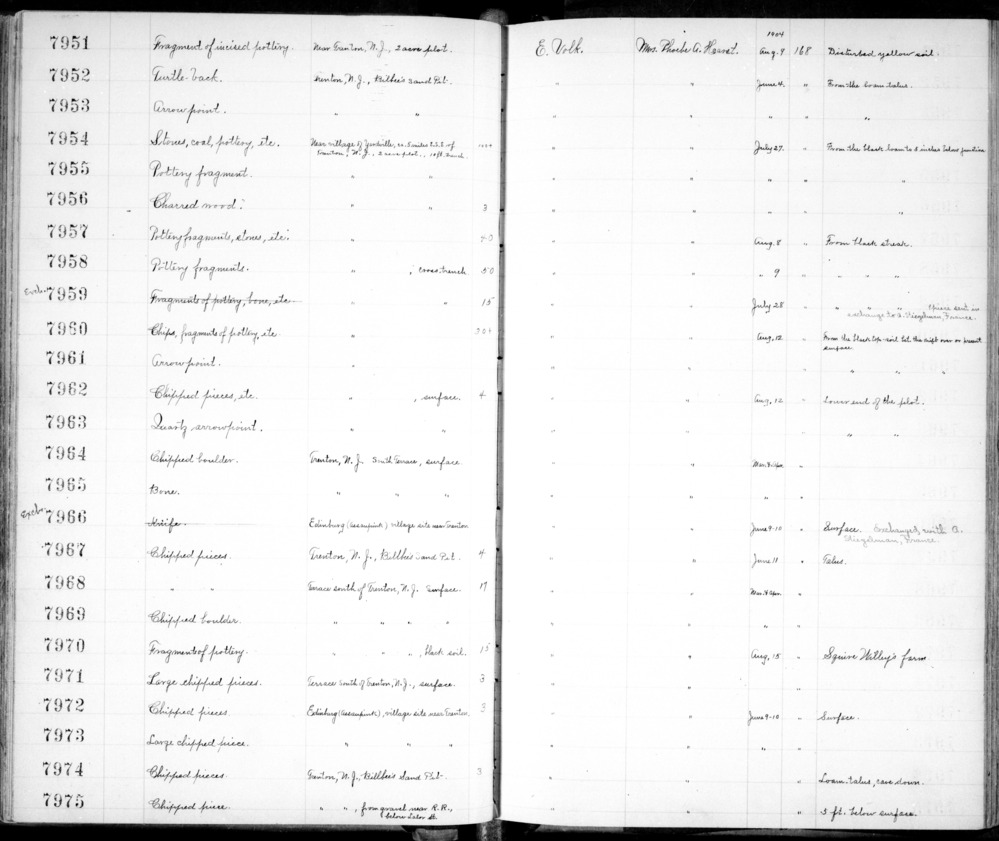 1904
7951 Fragment of incised pottery. Near Trenton, N.J., 2 acre plot. E. Volk. Mrs. Phoebe A. Hearst. Aug. 9 168 Disturbed yellow soil.
7952 Turtle-back. Trenton, N.J., Bilbee's Sand Pit. " " June 4. " From the loam talus.
7953 Arrowpoint. " " " " " " "
7954 Stones, coal, pottery, etc. Near village of Yardville, ca. 5 miles S.S.E. of " " July 27. " From the black loam to 2 inches below junction
Trenton, N.J., 2 acre plot., 10 ft. trench.
7955 Pottery fragment. " " " " " " "
7956 Charred wood. " " 3 " " " " "
7957 Pottery fragments, stones, etc. " 40 " " Aug. 8 " From black streak.
7958 Pottery fragments. " , cross trench 50 " " " 9 " " " "
Exch. 7959 Fragments of pottery, bone, etc. " " 15 " " July 28 " " " " 1 piece sent in
exchange to A. Stieglman, France.
7960 Chips, fragments of pottery, etc. " 20+ " " Aug. 12 " From the black top-soil till the drift over or present
surface.
7961 Arrowpoint. " " " " " "
7962 Chipped pieces, etc. " , surface. 4 " " Aug. 12 " Lower end of the plot.
7963 Quartz arrowpoint. " " " " " " "
7964 Chipped boulder. Trenton, N.J. South Terrace, surface. " " Mar. & Apr. "
7965 Bone. " " " " " " "
Exch. 7966 Knife. Edinburg (Assanpink) village site near Trenton " " June 9-10 " Surface. Exchanged with A.
Stieglman, France.
7967 Chipped pieces. Trenton, N.J., Bilbee's Sand Pit. 4 " " June 11 " Talus.
7968 " " Terrace south of Trenton, N.J. surface. 17 " " Mar. & Apr. "
7969 Chipped boulder. " " " " " " "
7970 Fragments of pottery. " " " , black soil. 15 " " Aug. 15 " Squire Watley's farm
7971 Large chipped pieces. Terrace South of Trenton, N.J., surface. 3 " " "
7972 Chipped pieces. Edinburg (Assanpink), village site near Trenton 3 " " June 9-10 " Surface.
7973 Large chipped piece. " " " " " " "
7974 Chipped pieces. Trenton, N.J., Bilbee's Sand Pit. 3 " " " Loam-talus, cave down.
7975 Chipped piece. " " , from gravel near R.R., " " " 5 ft. below surface.
below Lalor St.